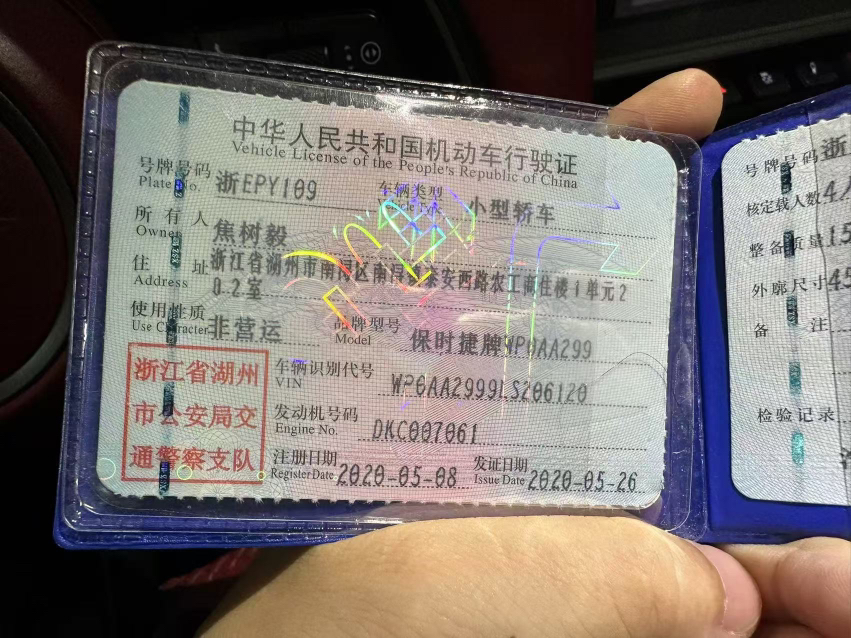 中华人民共和国机动车行驶证
Vehicle License of the People's Republic of China
号牌号码 浙EPY109 车辆类型 小型轿车
Plate No.
所有人 焦树毅
Owner
住址 浙江省湖州市南浔区南浔 泰安西路农工商住楼1单元2
Address 02室
使用性质 非营运 品牌型号 保时捷牌WP0AA299
Use Character Model
浙江省湖州
市公安局交
通警察支队
车辆识别代号 WP0AA2999LS206120
VIN
发动机号码 DKC007061
Engine No.
注册日期 2020-05-08 发证日期 2020-05-26
Register Date Issue Date
号牌号码 浙
核定载人数 4人
整备质量 15
外廓尺寸 45
备注
检验记录